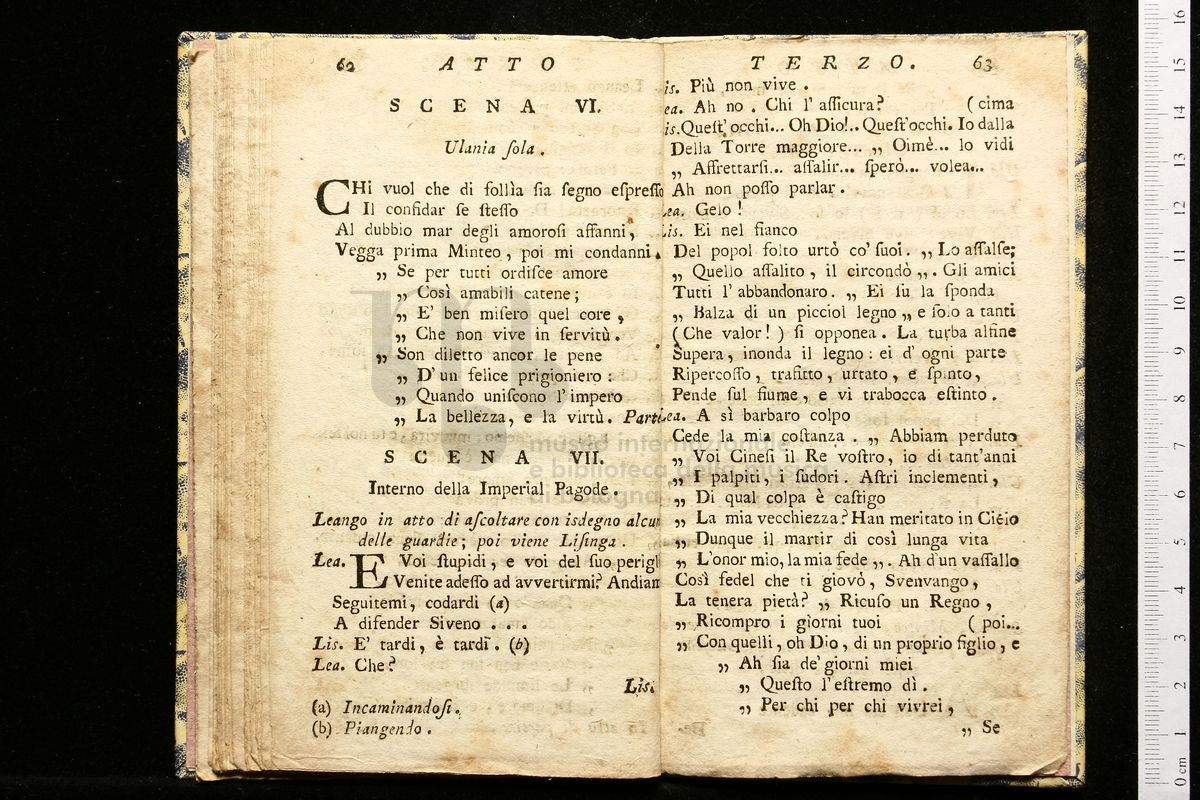 62 ATTO
SCENA VI.
Ulania ſola.
CHi vuol che di follìa ſia ſegno eſpreſſo
Il confidar ſe ſteſſo
Al dubbio mar degli amoroſi affanni,
Vegga prima Minteo, poi mi condanni.
„ Se per tutti ordiſce amore
„ Così amabili catene;
„ E' ben miſero quel core,
„ Che non vive in ſervitù.
„ Son diletto ancor le pene
„ D' un felice prigioniero:
„ Quando uniſcono l' impero
„ La bellezza, e la virtù. Parte
SCENA VII.
Interno della Imperial Pagode.
Leango in atto di aſcoltare con isdegno alcun
delle guardie; poi viene Liſinga.
Lea. E Voi ſtupidi, e voi del ſuo perigl
Venite adeſſo ad avvertirmi? Andiam
Seguitemi, codardi (a)
A difender Siveno . . .
Lis. E' tardi, è tardi. (b)
Lea. Che?
Lis.
(a) Incaminandoſi.
(b) Piangendo.
TERZO. 63
is. Più non vive.
ea. Ah no. Chi l' aſſicura? ( cima
is. Queſt' occhi... Oh Dio!.. Queſt' occhi. Io dalla
Della Torre maggiore... „ Oimè... lo vidi
„ Affrettarſi... aſſalir... ſperò... volea...
Ah non poſſo parlar.
Lea. Gelo!
Lis. Ei nel fianco
Del popol folto urtò co' ſuoi. „ Lo aſſalſe;
„ Quello aſſalito, il circondò „. Gli amici
Tutti l' abbandonaro. „ Ei ſu la ſponda
„ Balza di un picciol legno „ e ſolo a tanti
(Che valor!) ſi opponea. La turba alfine
Supera, inonda il legno: ei d' ogni parte
Ripercoſſo, trafitto, urtato, e ſpinto,
Pende ſul fiume, e vi trabocca eſtinto.
Lea. A sì barbaro colpo
Cede la mia coſtanza. „ Abbiam perduto
„ Voi Cineſi il Re voſtro, io di tant'anni
„ I palpiti, i ſudori. Aſtri inclementi,
„ Di qual colpa è caſtigo
„ La mia vecchiezza? Han meritato in Cielo
„ Dunque il martir di così lunga vita
„ L'onor mio, la mia fede „. Ah d'un vaſſallo
Così fedel che ti giovò, Svenvango,
La tenera pietà? „ Ricuſo un Regno,
„ Ricompro i giorni tuoi ( poi...
„ Con quelli, oh Dio, di un proprio figlio, e
„ Ah ſia de' giorni miei
„ Queſto l' eſtremo dì.
„ Per chi per chi vivrei,
„ Se
museo internazionale
e biblioteca della musica
di bologna
0 cm 1 2 3 4 5 6 7 8 9 10 11 12 13 14 15 16